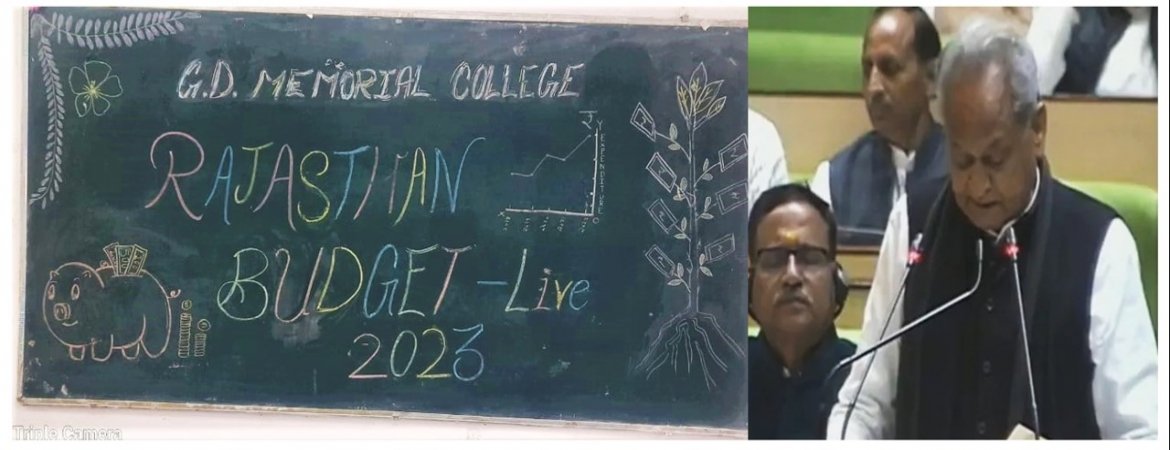 G.D. MEMORIAL COLLEGE
RAJASTHAN
BUDGET - Live
2023
Triple Camera